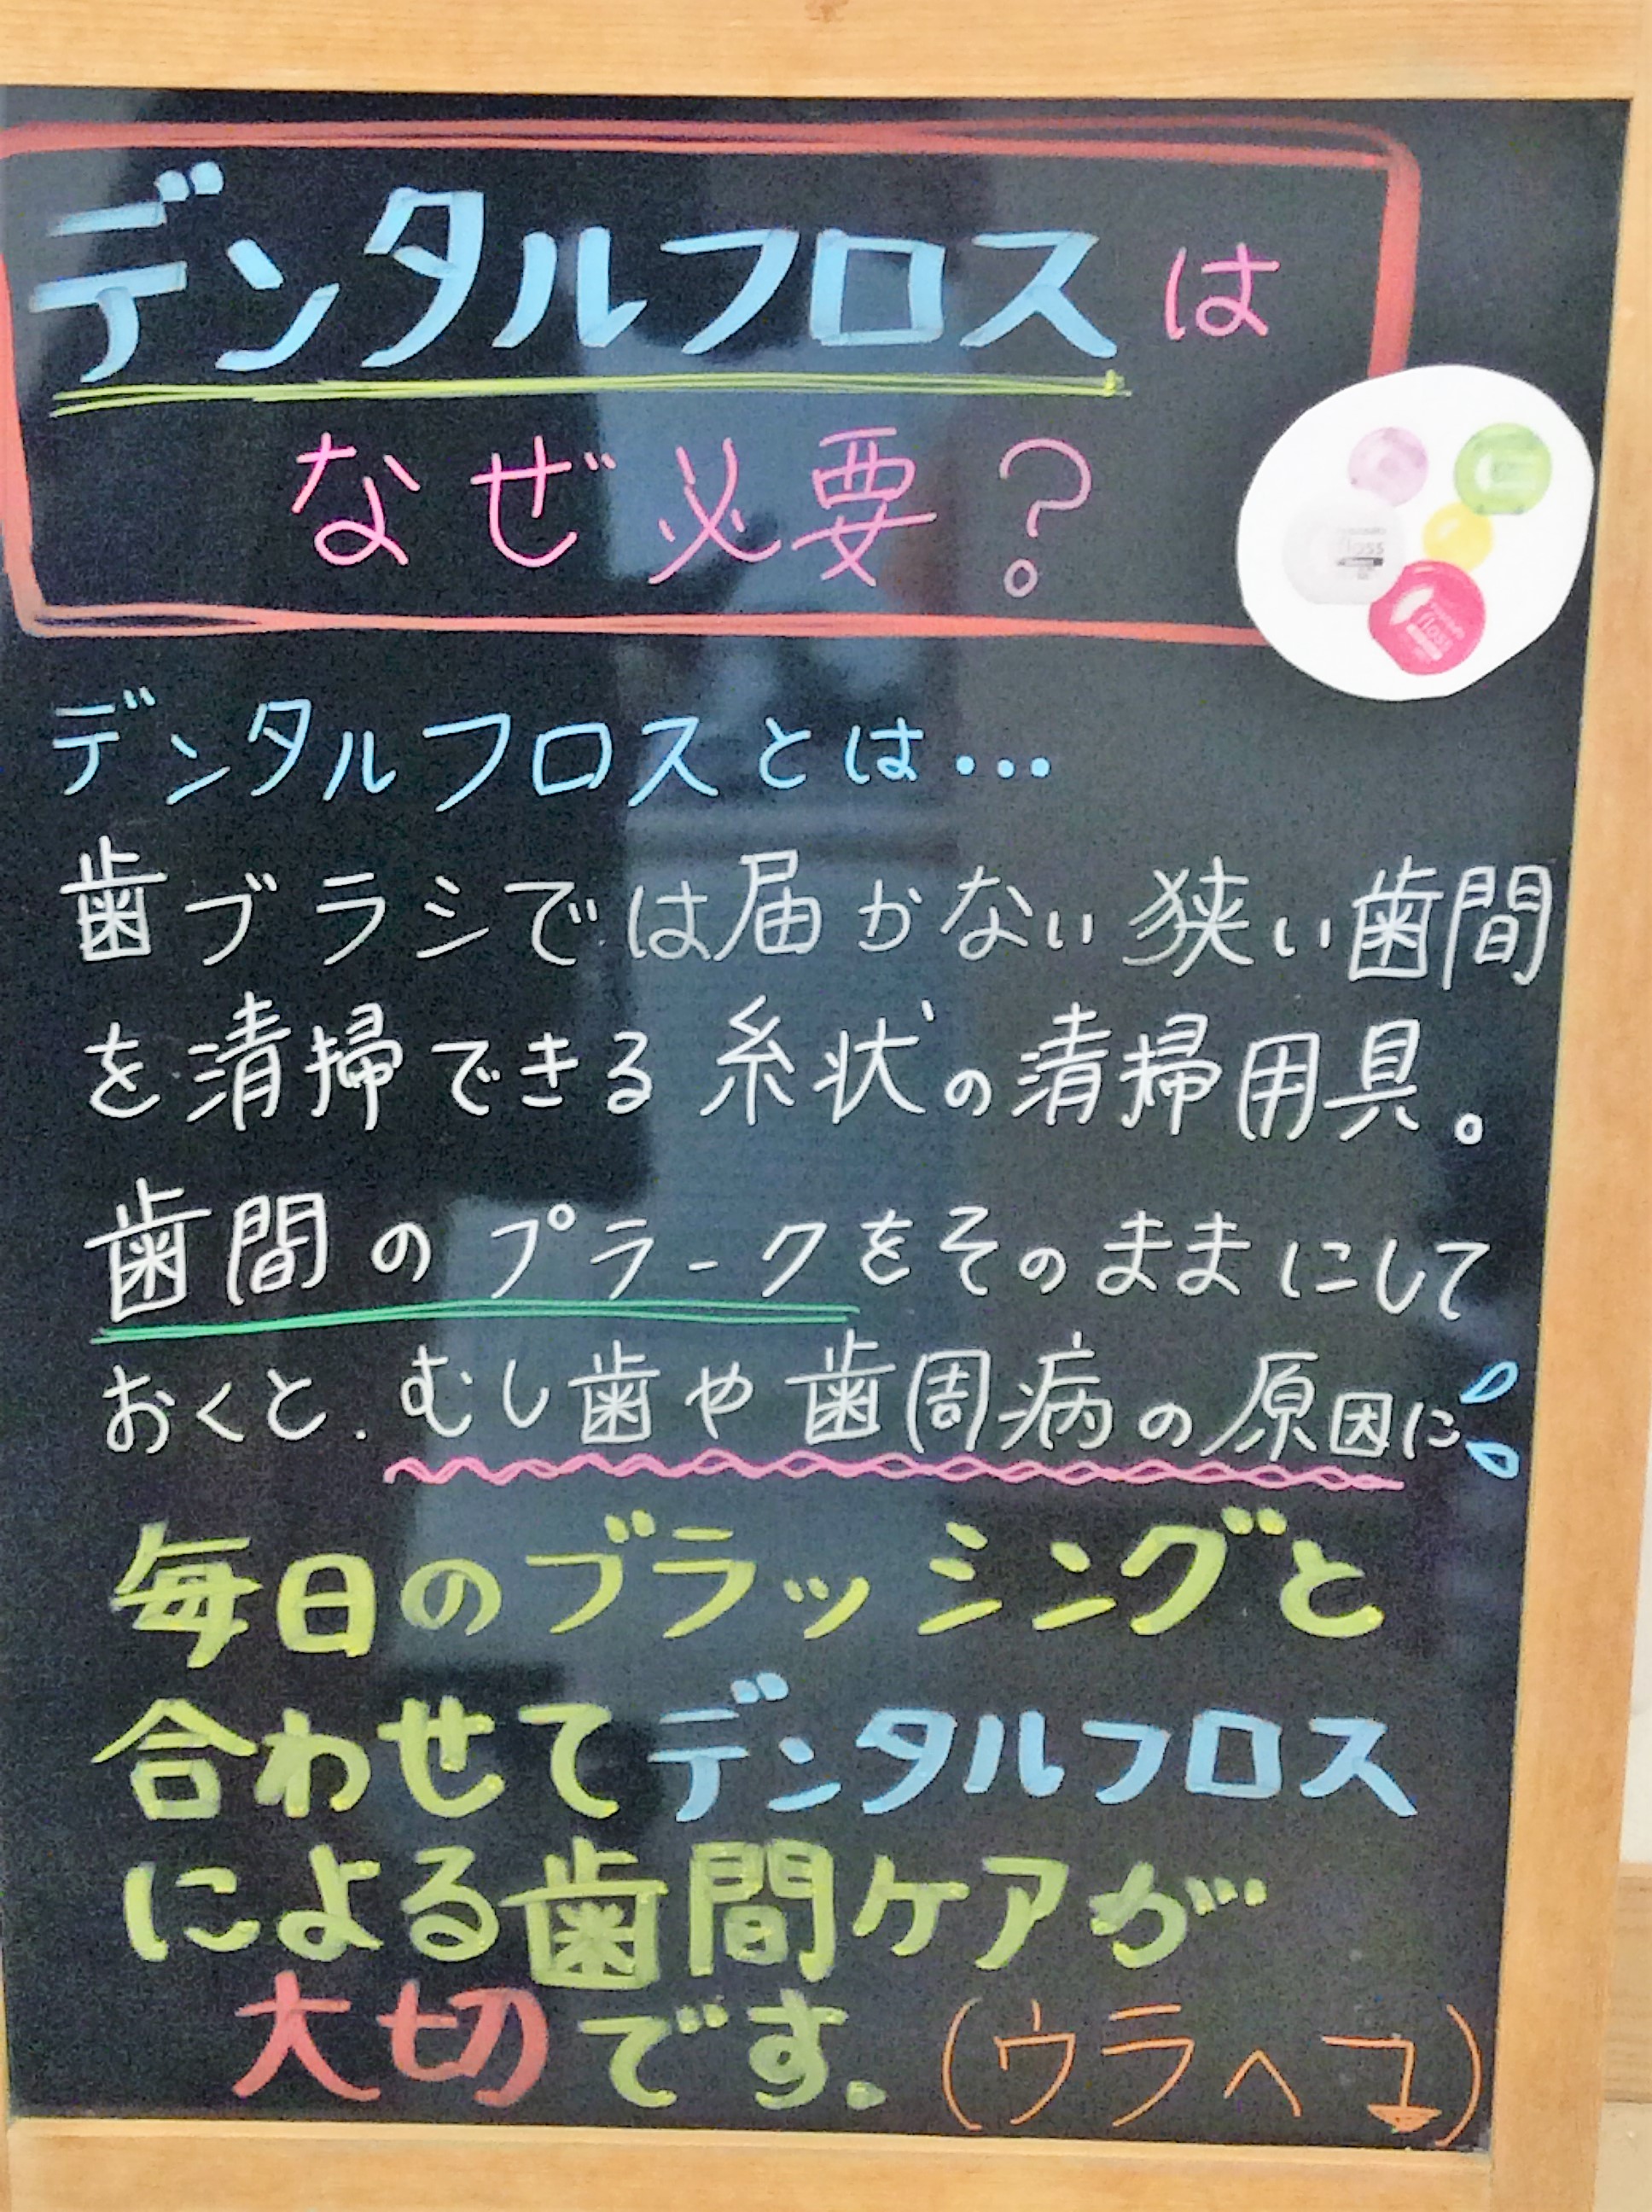 デンタルフロスは
なぜ必要？
floss
floss
デンタルフロスとは…
歯ブラシでは届かない狭い歯間
を清掃できる糸状の清掃用具。
歯間のプラークをそのままにして
おくと、むし歯や歯周病の原因に
毎日のブラッシングと
合わせてデンタルフロス
による歯間ケアが
大切です。(ウラへ)